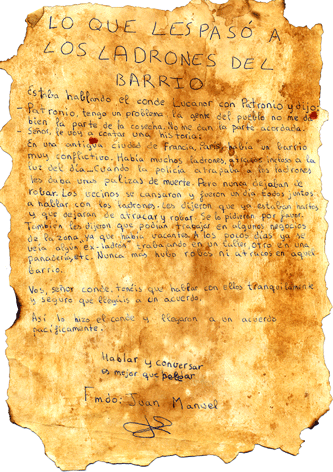 LO QUE LES PASÓ A
LOS LADRONES DEL
BARRIO
Estaba hablando el conde Lucanor con Petronio y dijo:
- Petronio, tengo un problema. la gente del pueblo no me da
bien la parte de la cosecha. No me dan la parte acordada.
- Señor, le voy a contar una historia:
En una antigua ciudad de Francia, París, había un barrio
muy conflictivo. Había muchos ladrones, atracos incluso a la
luz del día... Cuando la policía atrapaba a los ladrones
les daba unas palizas de muerte. Pero nunca dejaban de
robar. Los vecinos se cansaron y fueron un día todos juntos
a hablar con los ladrones. Les dijeron que ya estaban hartos
y que dejaran de atracar y robar. Se lo pidieron por favor.
También les dijeron que podían trabajar en algunos negocios
de la zona, ya que había vacantes. A los pocos días ya se
veía algún ex-ladrón trabajando en un taller, otro en una
panadería, etc. Nunca más hubo robos ni atracos en aquel
barrio.
Vos, señor conde, tenéis que hablar con ellos tranquilamente
y seguro que llegáis a un acuerdo.
Así lo hizo el conde y llegaron a un acuerdo
pacíficamente.
Hablar y conversar
es mejor que pelear
Fmdo: Juan Manuel